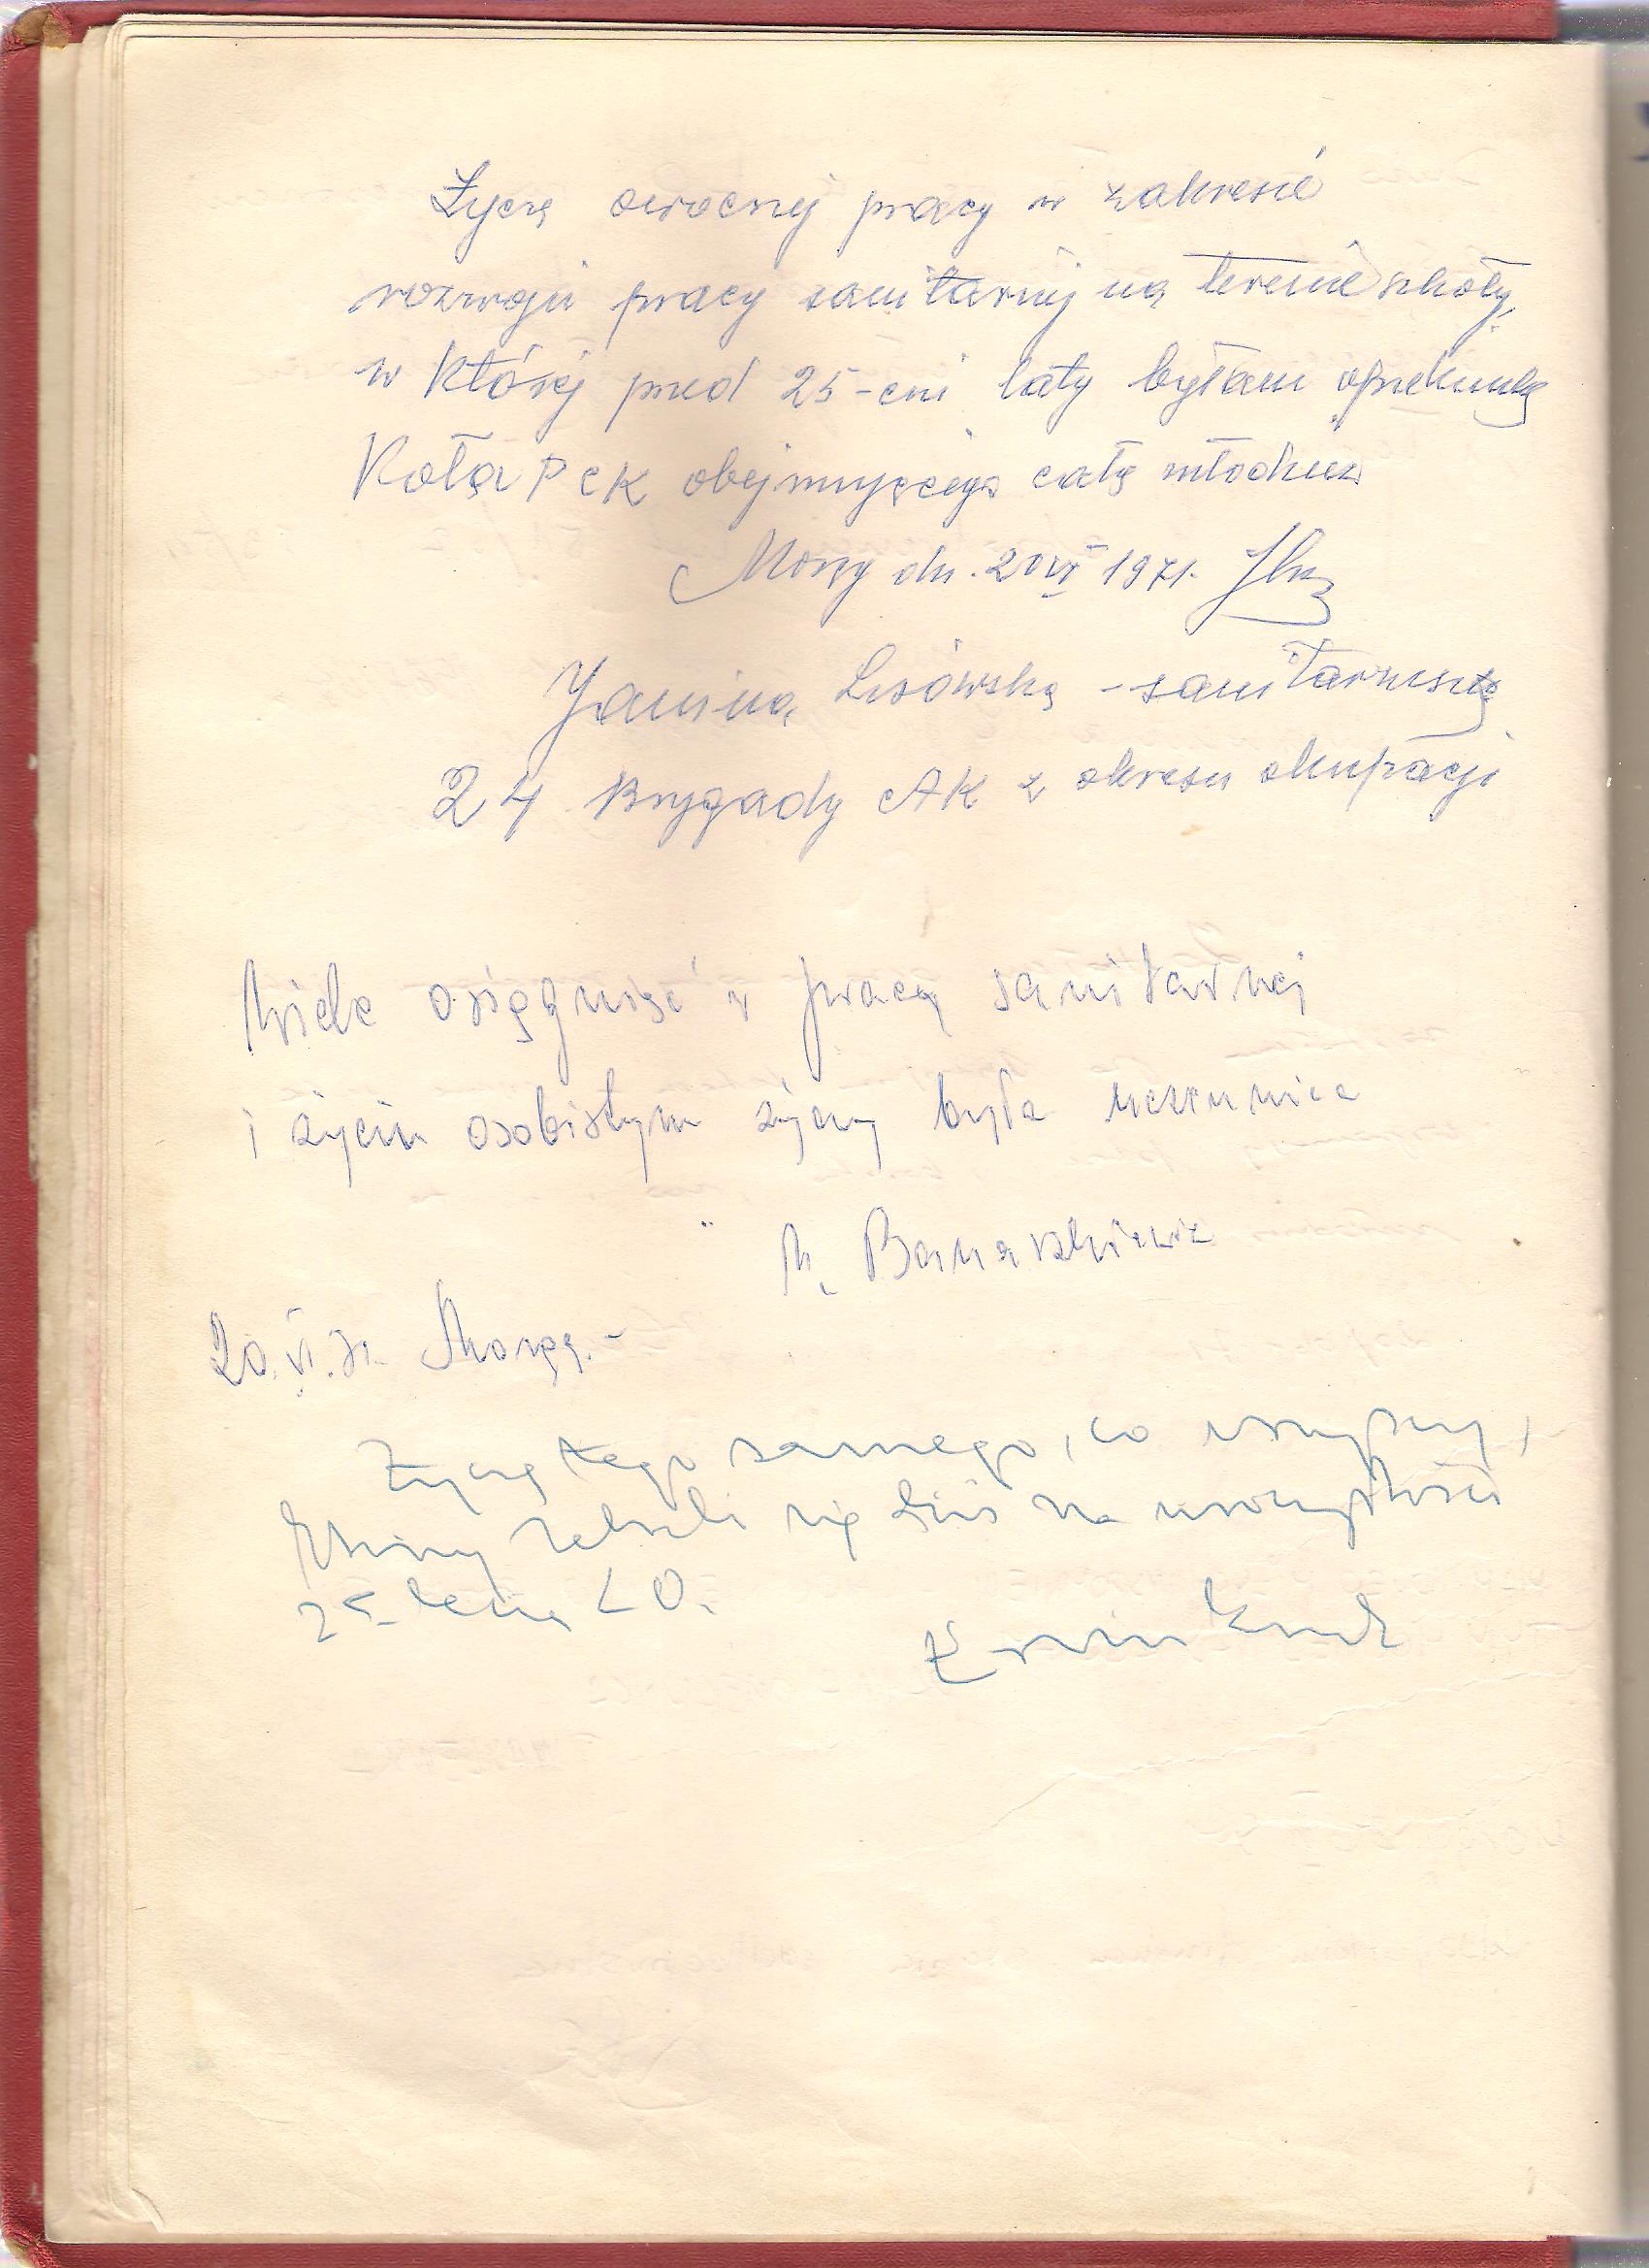 Życzę owocnej pracy w zakresie
rozwoju pracy sanitarnej na terenie szkoły,
w której przed 25-cni laty byłam opiekunką
Koła PCK obejmującego całą młodzież
Morąg dn. 20 VI 1971.
Janina Lisowska - sanitariuszka
24 Brygady AK z okresu okupacji
Wiele osiągnięć w pracy sanitarnej
i życiu osobistym życzy była uczennica
M. Banaszkiewicz
20.VI.71. Morąg.-
Życzę tego samego, co wszyscy,
którzy zebrali się dziś na uroczystości
25-lecia LO.